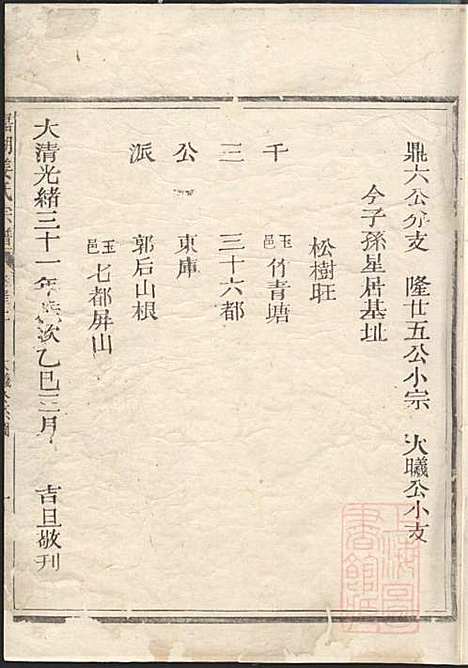 鼎六公分支　隆廿五公小宗　火曦公小支
今子孫星居基址
松樹旺
千　玉邑竹青塘
三　三十六都
公　東庫
派　郭后山根
玉邑七都屏山
大清光緒三十一年歲次乙巳三月　吉旦敬刊
姜氏宗譜